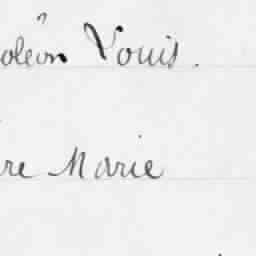 oléon Louis.
re Marie